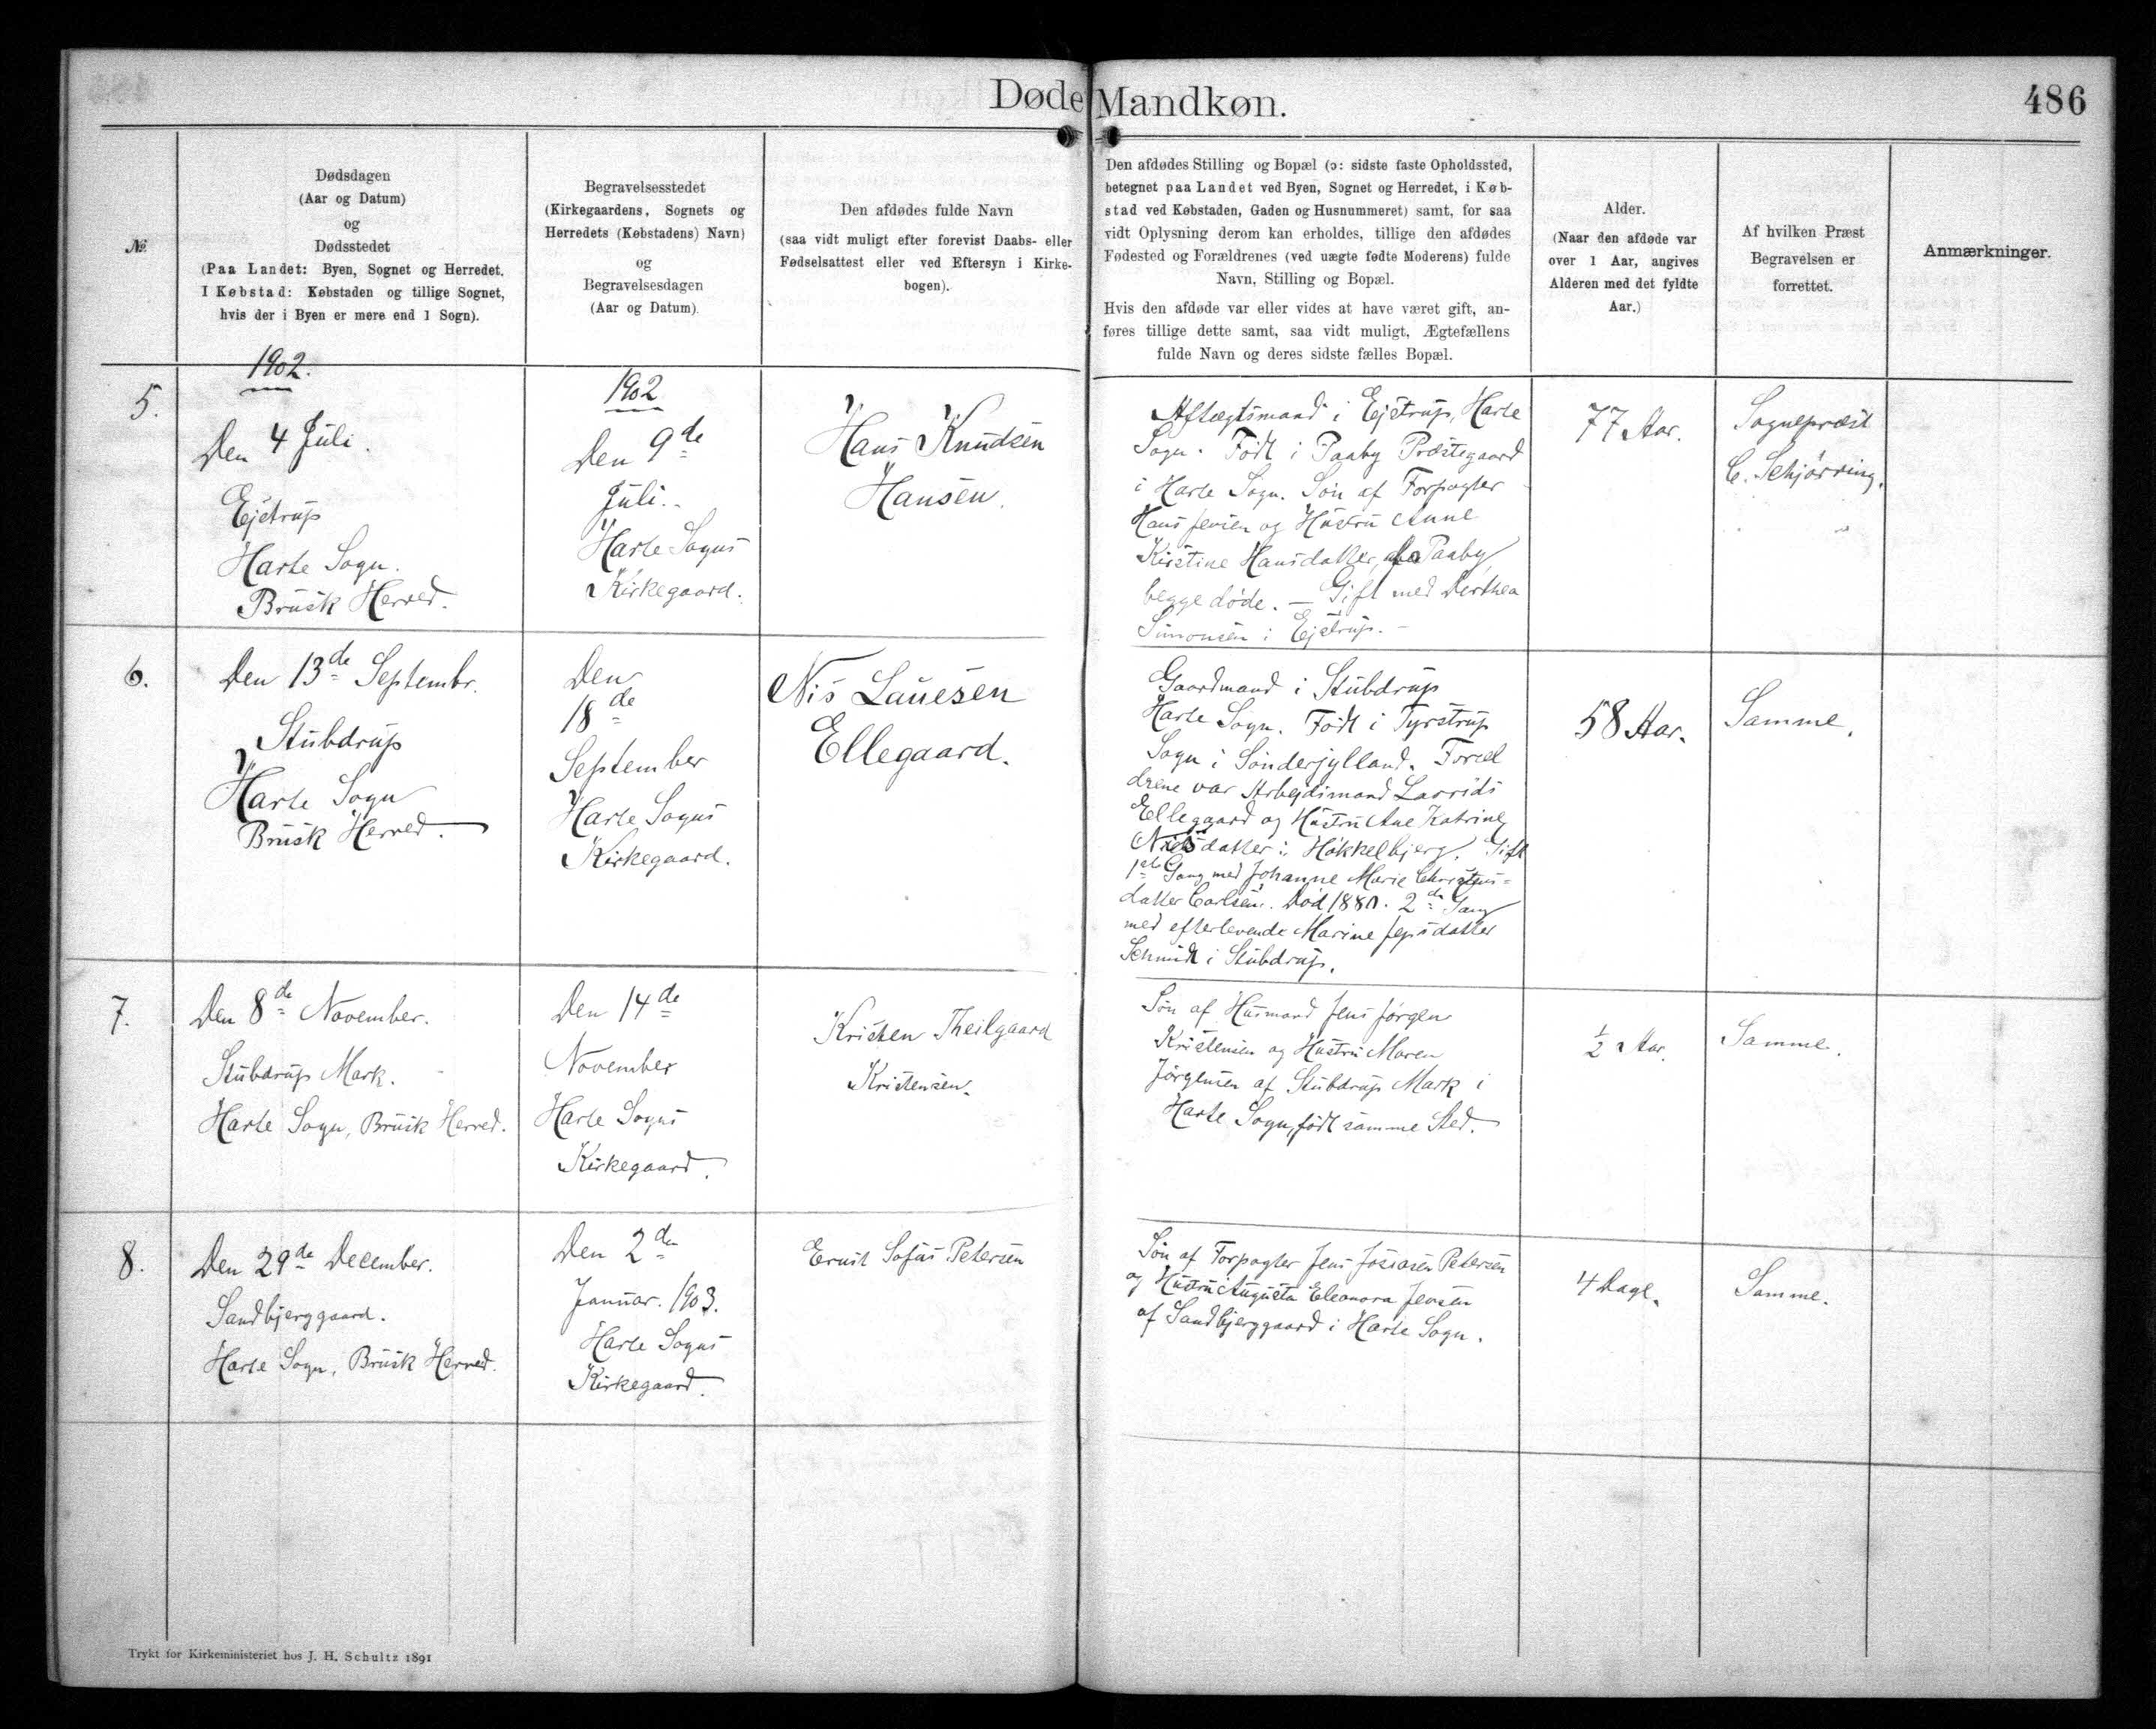 Døde Mandkøn.
486
№
Dødsdagen
(Aar og Datum)
og
Dødsstedet
(Paa Landet: Byen, Sognet og Herredet.
I Købstad: Købstaden og tillige Sognet,
hvis der i Byen er mere end 1 Sogn).
Begravelsesstedet
(Kirkegaardens, Sognets og
Herredets (Købstadens) Navn)
og
Begravelsesdagen
(Aar og Datum).
Den afdødes fulde Navn
(saa vidt muligt efter forevist Daabs- eller
Fødselsattest eller ved Eftersyn i Kirke-
bogen).
Den afdødes Stilling og Bopæl (ɔ: sidste faste Opholdssted,
betegnet paa Landet ved Byen, Sognet og Herredet, i Køb-
stad ved Købstaden, Gaden og Husnummeret) samt, for saa
vidt Oplysning derom kan erholdes, tillige den afdødes
Fødested og Forældrenes (ved uægte fødte Moderens) fulde
Navn, Stilling og Bopæl.
Hvis den afdøde var eller vides at have været gift, an-
føres tillige dette samt, saa vidt muligt, Ægtefællens
fulde Navn og deres sidste fælles Bopæl.
Alder.
(Naar den afdøde var
over 1 Aar, angives
Alderen med det fyldte
Aar.)
Af hvilken Præst
Begravelsen er
forrettet.
Anmærkninger.
5.
1902.
Den 4 Juli.
Ejstrup
Harte Sogn.
Brusk Herred.
1902
Den 9de
Juli.
Harte Sogns
Kirkegaard.
Hans Knudsen
Hansen.
Aftægtsmand i Ejstrup, Harte
Sogn. Født i Paaby Præstegaard
i Harte Sogn. Søn af Forpagter
Hans Jensen og Hustru Anne
Kirstine Hansdatter, Paaby
begge døde. — Gift med Dorthea
Simonsen i Ejstrup. —
77 Aar.
Sognepræst
C. Schjørring.
6.
Den 13de Septembr.
Stubdrup
Harte Sogn
Brusk Herred.
Den
18de
September
Harte Sogns
Kirkegaard.
Nis Lauesen
Ellegaard.
Gaardmand i Stubdrup
Harte Sogn. Født i Tyrstrup
Sogn i Sønderjylland. Foræl
drene var Arbejdsmand Laurids
Ellegaard og Hustru Ane Katrine
Nisdatter i Hökkelbjerg. Gift
1ste Gang med Johanne Marie Christens-
datter Carlsen. Død 1880. 2den Gang
med efterlevende Marine Jepsdatter
Schmidt i Stubdrup.
58 Aar.
Samme.
7.
Den 8de November.
Stubdrup Mark.
Harte Sogn, Brusk Herred.
Den 14de
November
Harte Sogns
Kirkegaard.
Kristen Theilgaard
Kristensen.
Søn af Husmand Jens Jørgen
Kristensen og Hustru Maren
Jørgensen af Stubdrup Mark i
Harte Sogn, født samme Sted.
½ Aar.
Samme.
8.
Den 29de December.
Sandbjerggaard.
Harte Sogn, Brusk Herred.
Den 2den
Januar. 1903.
Harte Sogns
Kirkegaard.
Ernst Sofus Petersen
Søn af Forpagter Jens Josiasen Petersen
og Hustru Augusta Eleonora Jensen
af Sandbjerggaard i Harte Sogn.
4 Dage.
Samme.
Trykt for Kirkeministeriet hos J. H. Schultz 1891